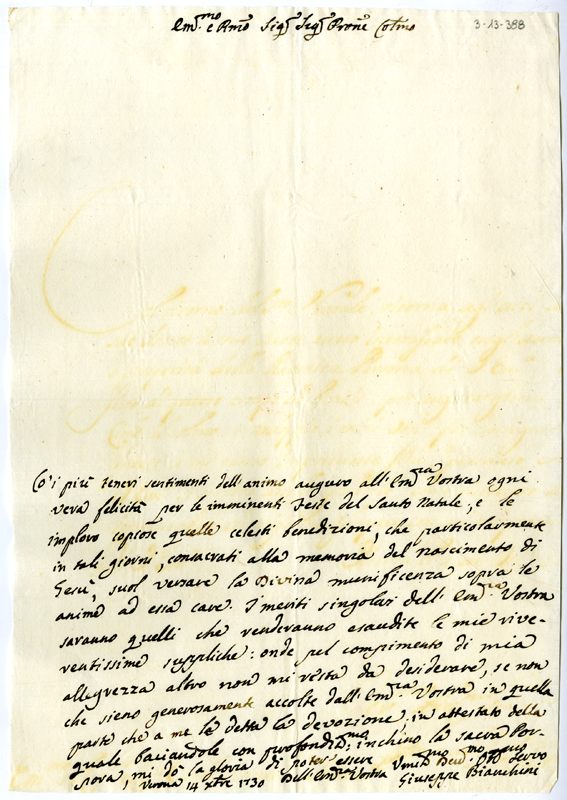 Em.mo e Rmo Sig.r Sig.r Prone Colmo
3-13-388
Co' i più teneri sentimenti dell'animo auguro all'Em.za Vostra ogni
vera felicità per le imminenti Feste del Santo Natale, e le
imploro copiose quelle celesti benedizioni, che particolarmente
in tali giorni, consacrati alla memoria del nascimento di
Gesù, suol versare la Divina munificenza sopra le
anime ad essa care. I meriti singolari dell'Em.za Vostra
saranno quelli che renderanno esaudite le mie rive-
rentissime suppliche: onde pel compimento di mia
allegrezza altro non mi resta da desiderare, se non
che sieno generosamente accolte dall'Em.za Vostra in quella
parte che a me le detta la devozione, in attestato della
quale baciandole con profondis.mo inchino la sacra Por-
pora, mi dò la gloria di poter essere
Verona 14 Xbre 1730 Dell'Em.za Vostra Umil.mo Dev.mo Servo
Giuseppe Bianchini